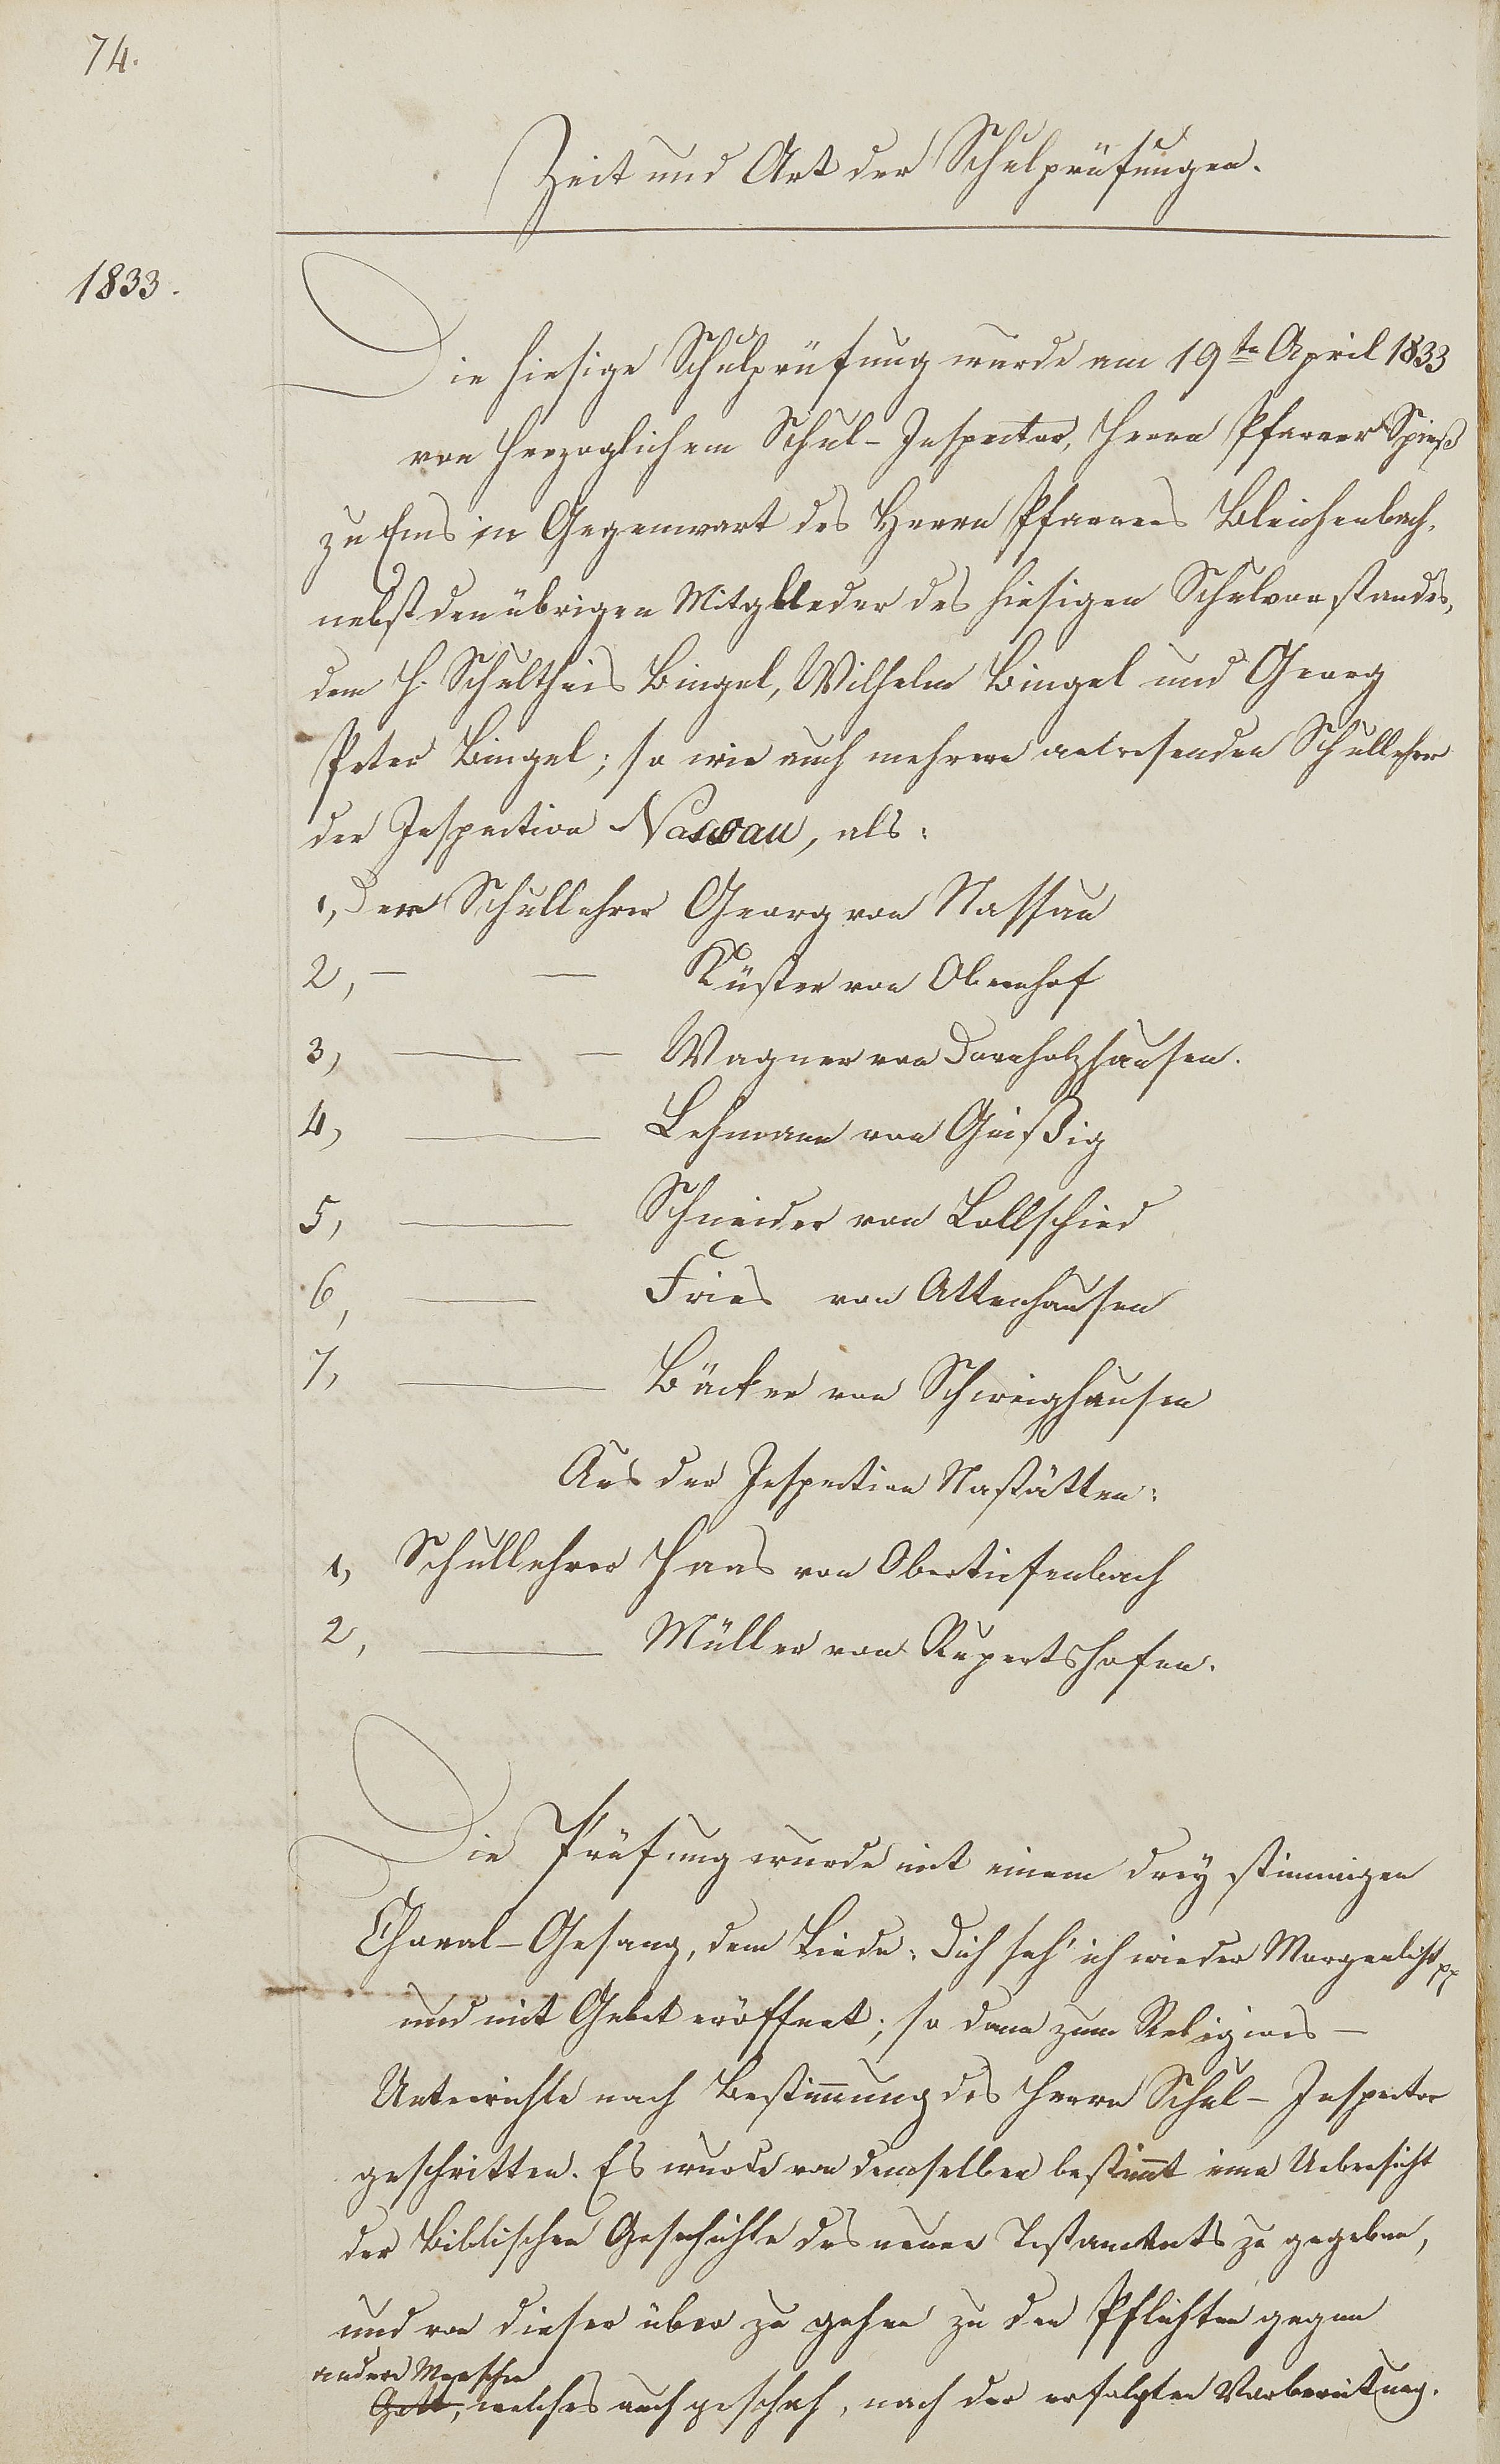 74.
Zeit und Art der Schulprüfungen.
1833.
Die hiesige Schulprüfung wurde am 19ten April 1833
von Herzoglichem Schul-Inspector, Herrn Pfarrer Spieß
zu Ems in Gegenwart des Herrn Pfarrers Bleichenbach,
nebst den übrigen Mitglieder des hiesigen Schulvorstandes,
dem H. Schultheis Bingel, Wilhelm Bingel und Georg
Peter Bingel; so wie auch mehrere anwesenden Schullehrer
der Inspection Nassau, als:
1, Der Schullehrer Georg von Nassau
2, — — Küster von Obernhof
3, — — Wagner von Dornholzhausen.
4, — Lehmann von Geißig
5, — Schneider von Lollschied
6, — Fries von Attenhausen
7, — Bäcker von Schweighausen
Aus der Inspection Nastätten:
1, Schullehrer Haas von Obertiefenbach
2, — Müller von Rupertshofen.
Die Prüfung wurde mit einem drey stimmigen
Choral-Gesang, dem Liede: Dich seh' ich wieder Morgenlicht pp
und mit Gebet eröffnet; so dann zum Religions-
Unterrichte nach Bestimmung des Herrn Schul-Inspector
geschritten. Es wurde von demselben bestimmt eine Uebersicht
der Biblischen Geschichte des neuen Testaments zu gegeben,
und von dieser über zu gehen zu den Pflichten gegen
andere Menschen
Gott, welches auch geschah, nach der erfolgten Vorbereitung.